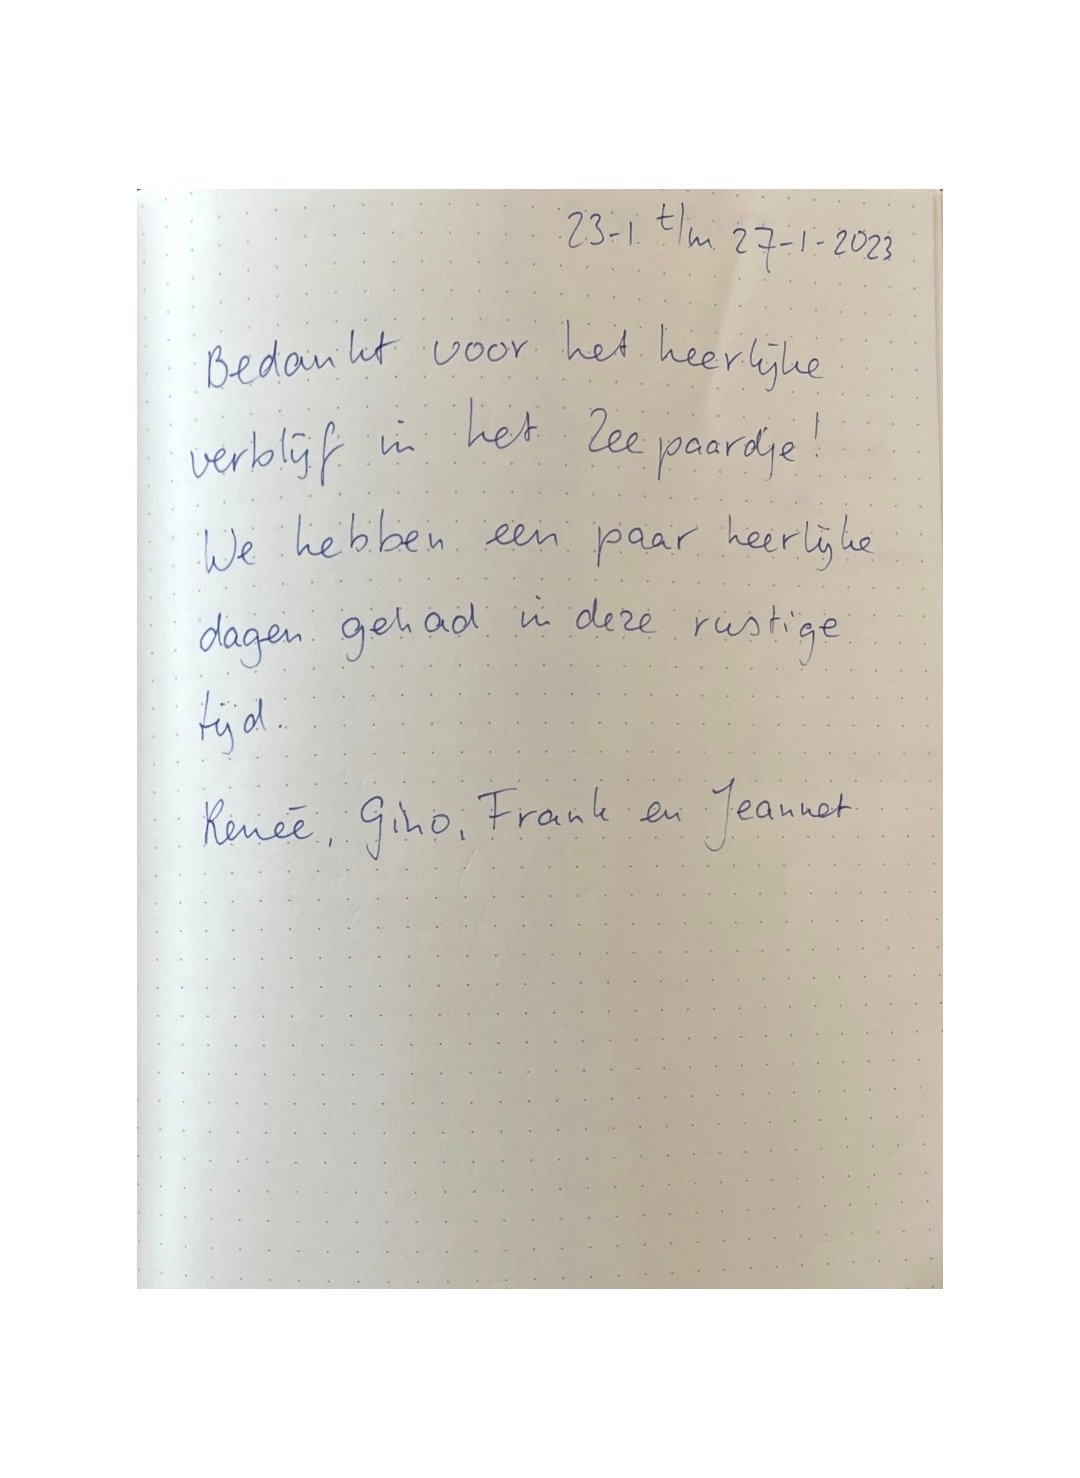 23-1 t/m 27-1-2023
Bedankt voor het heerlijke
verblijf in het Zeepaardje!
We hebben een paar heerlijke
dagen gehad in deze rustige
tijd.
Reneé, Gino, Frank en Jeannet